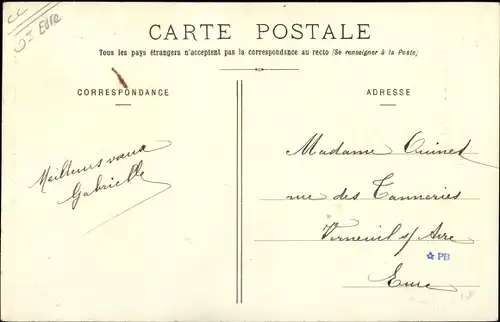 CARTE POSTALE
Tous les pays étrangers n'acceptent pas la correspondance au recto (Se renseigner à la Poste)
CORRESPONDANCE
ADRESSE
Meilleurs vœux
Gabrielle
Madame
rue des Tanneries
Verneuil s/ Avre
Eure
PB